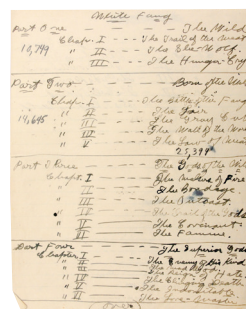 White Fang
Part One — The Wild
Chap. I — The Trail of the Meat
10,749 " II — The She-Wolf.
" III — The Hunger Cry
Part Two — Born of the Wild
Chap. I — The Battle of the Fangs
" II — The Lair
14,645 " III — The Gray Cub
" IV — The Wall of the World
" V — The Law of Meat
25,394
Part Three — The Gods of the Wild
Chapt. I — The Makers of Fire
" II — The Bondage
" III — The Outcast.
" IV — The Trail of the Gods
" V — The Covenant
" VI — The Famine.
Part Four — The Superior Gods
Chapter I — The Enemy of His Kind
" II — The Mad God
" III — The Reign of Hate
" IV — The Clinging Death
" V — The Indomitable
" VI — The Love-Master
Over